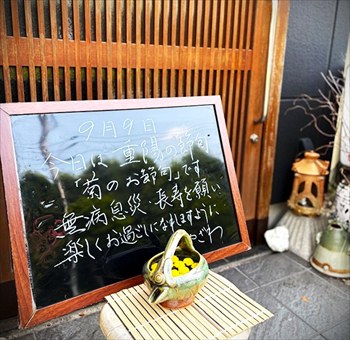 9月9日
今日は 重陽の節句
「菊のお節句」です
無病息災・長寿を願い
楽しくお過ごしになれますように